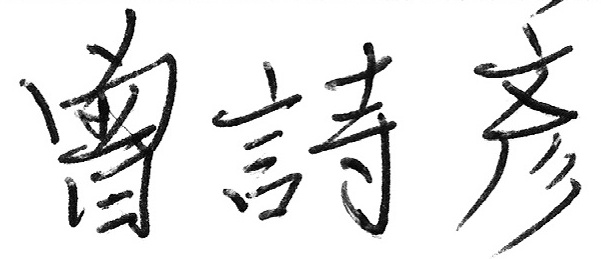 曾詩彥